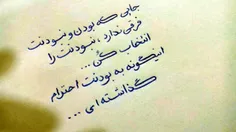 جایی که بودن و نبودنت
فرقی ندارد ، نبودنت را
انتخاب کن ...
اینگونه به بودنت احترام
گذاشته ای ...